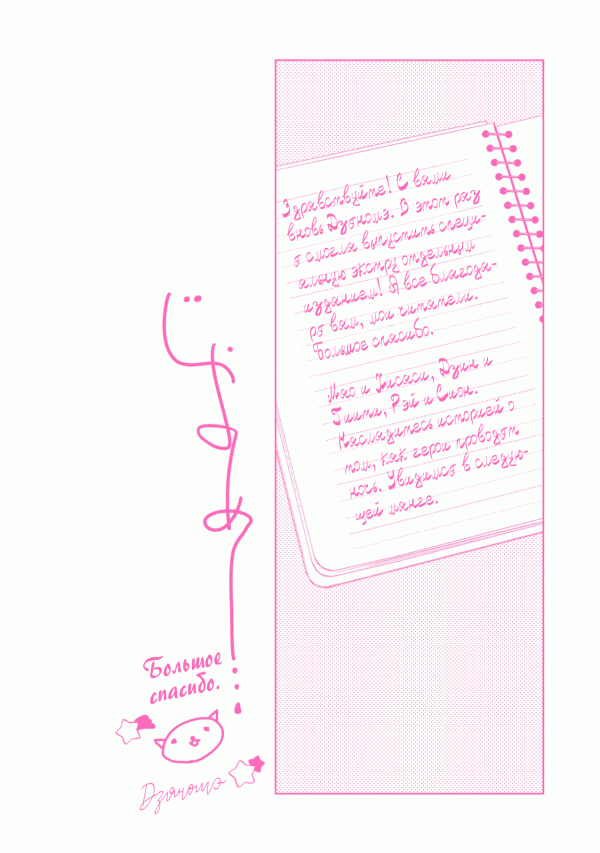 Здравствуйте! С вами
вновь Дзэномэ. В этот раз
я смогла выпустить специ-
альную экстру отдельным
изданием! А все благода-
ря вам, мои читатели.
Большое спасибо.
Мяо и Хисаси, Дзин и
Гиити, Рэй и Сион.
Насладитесь историей о
том, как герои проводят
ночь. Увидимся в следую-
щей манге.
Большое
спасибо.